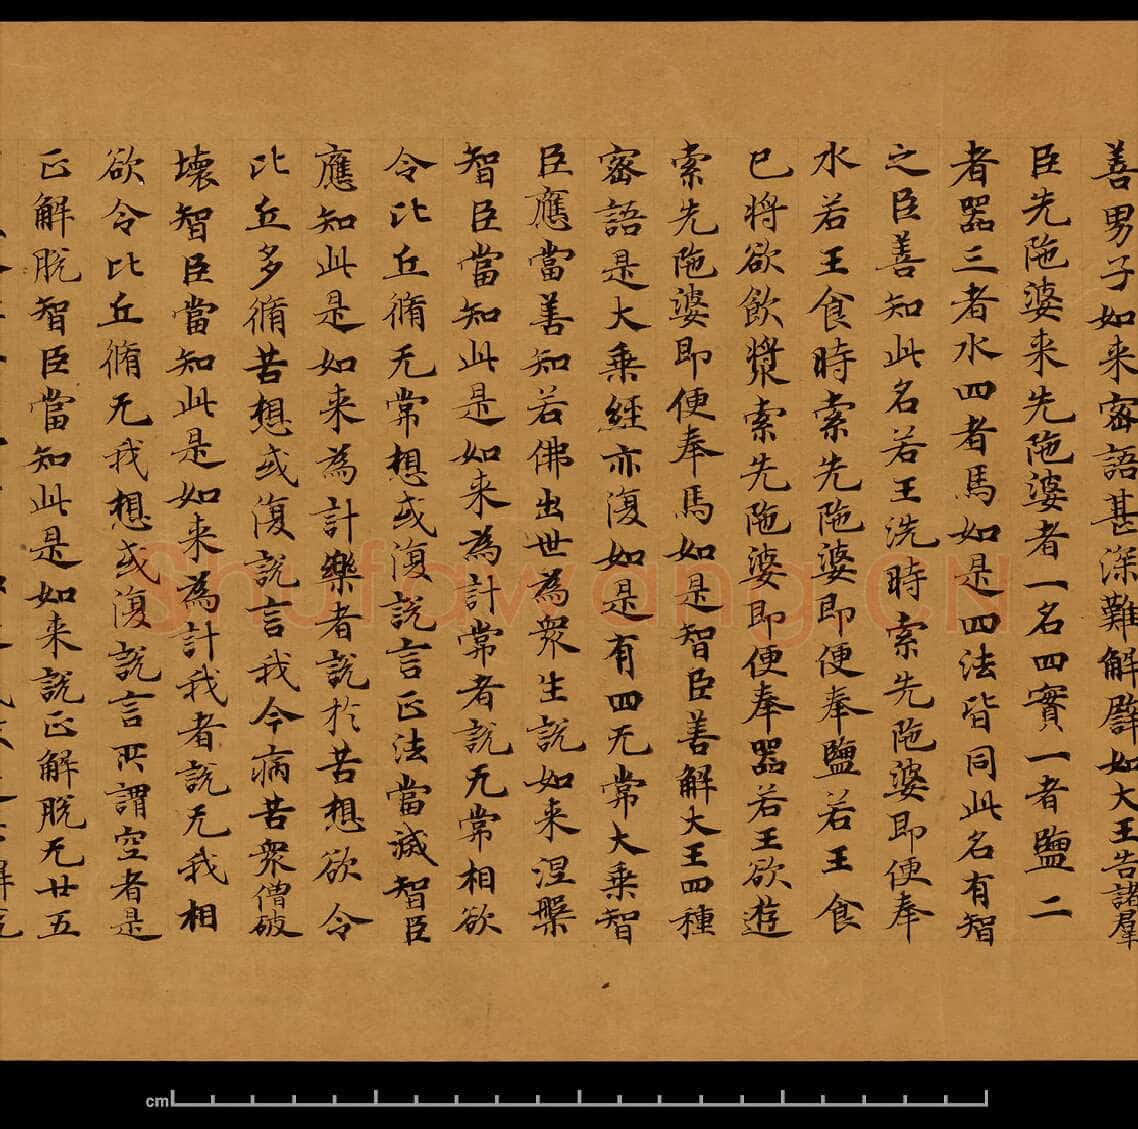 善男子如来密語甚深難解譬如大王告諸羣
臣先陁婆来先陁婆者一名四實一者鹽二
者器三者水四者馬如是四法皆同此名有智
之臣善知此名若王洗時索先陁婆即便奉
水若王食時索先陁婆即便奉鹽若王食
已將欲飲漿索先陁婆即便奉器若王欲遊
索先陁婆即便奉馬如是智臣善解大王四種
密語是大乘經亦復如是有四无常大乘智
臣應當善知若佛出世為衆生説如来涅槃
智臣當知此是如来為計常者説无常相欲
令比丘脩无常想或復説言正法當滅智臣
應知此是如来為計樂者説於苦想欲令
比丘多脩苦想或復説言我今病苦衆僧破
壞智臣當知此是如来為計我者説无我相
欲令比丘脩无我想或復説言所謂空者是
正解脱智臣當知此是如来説正解脱无廿五
Shufawang.CN
cm